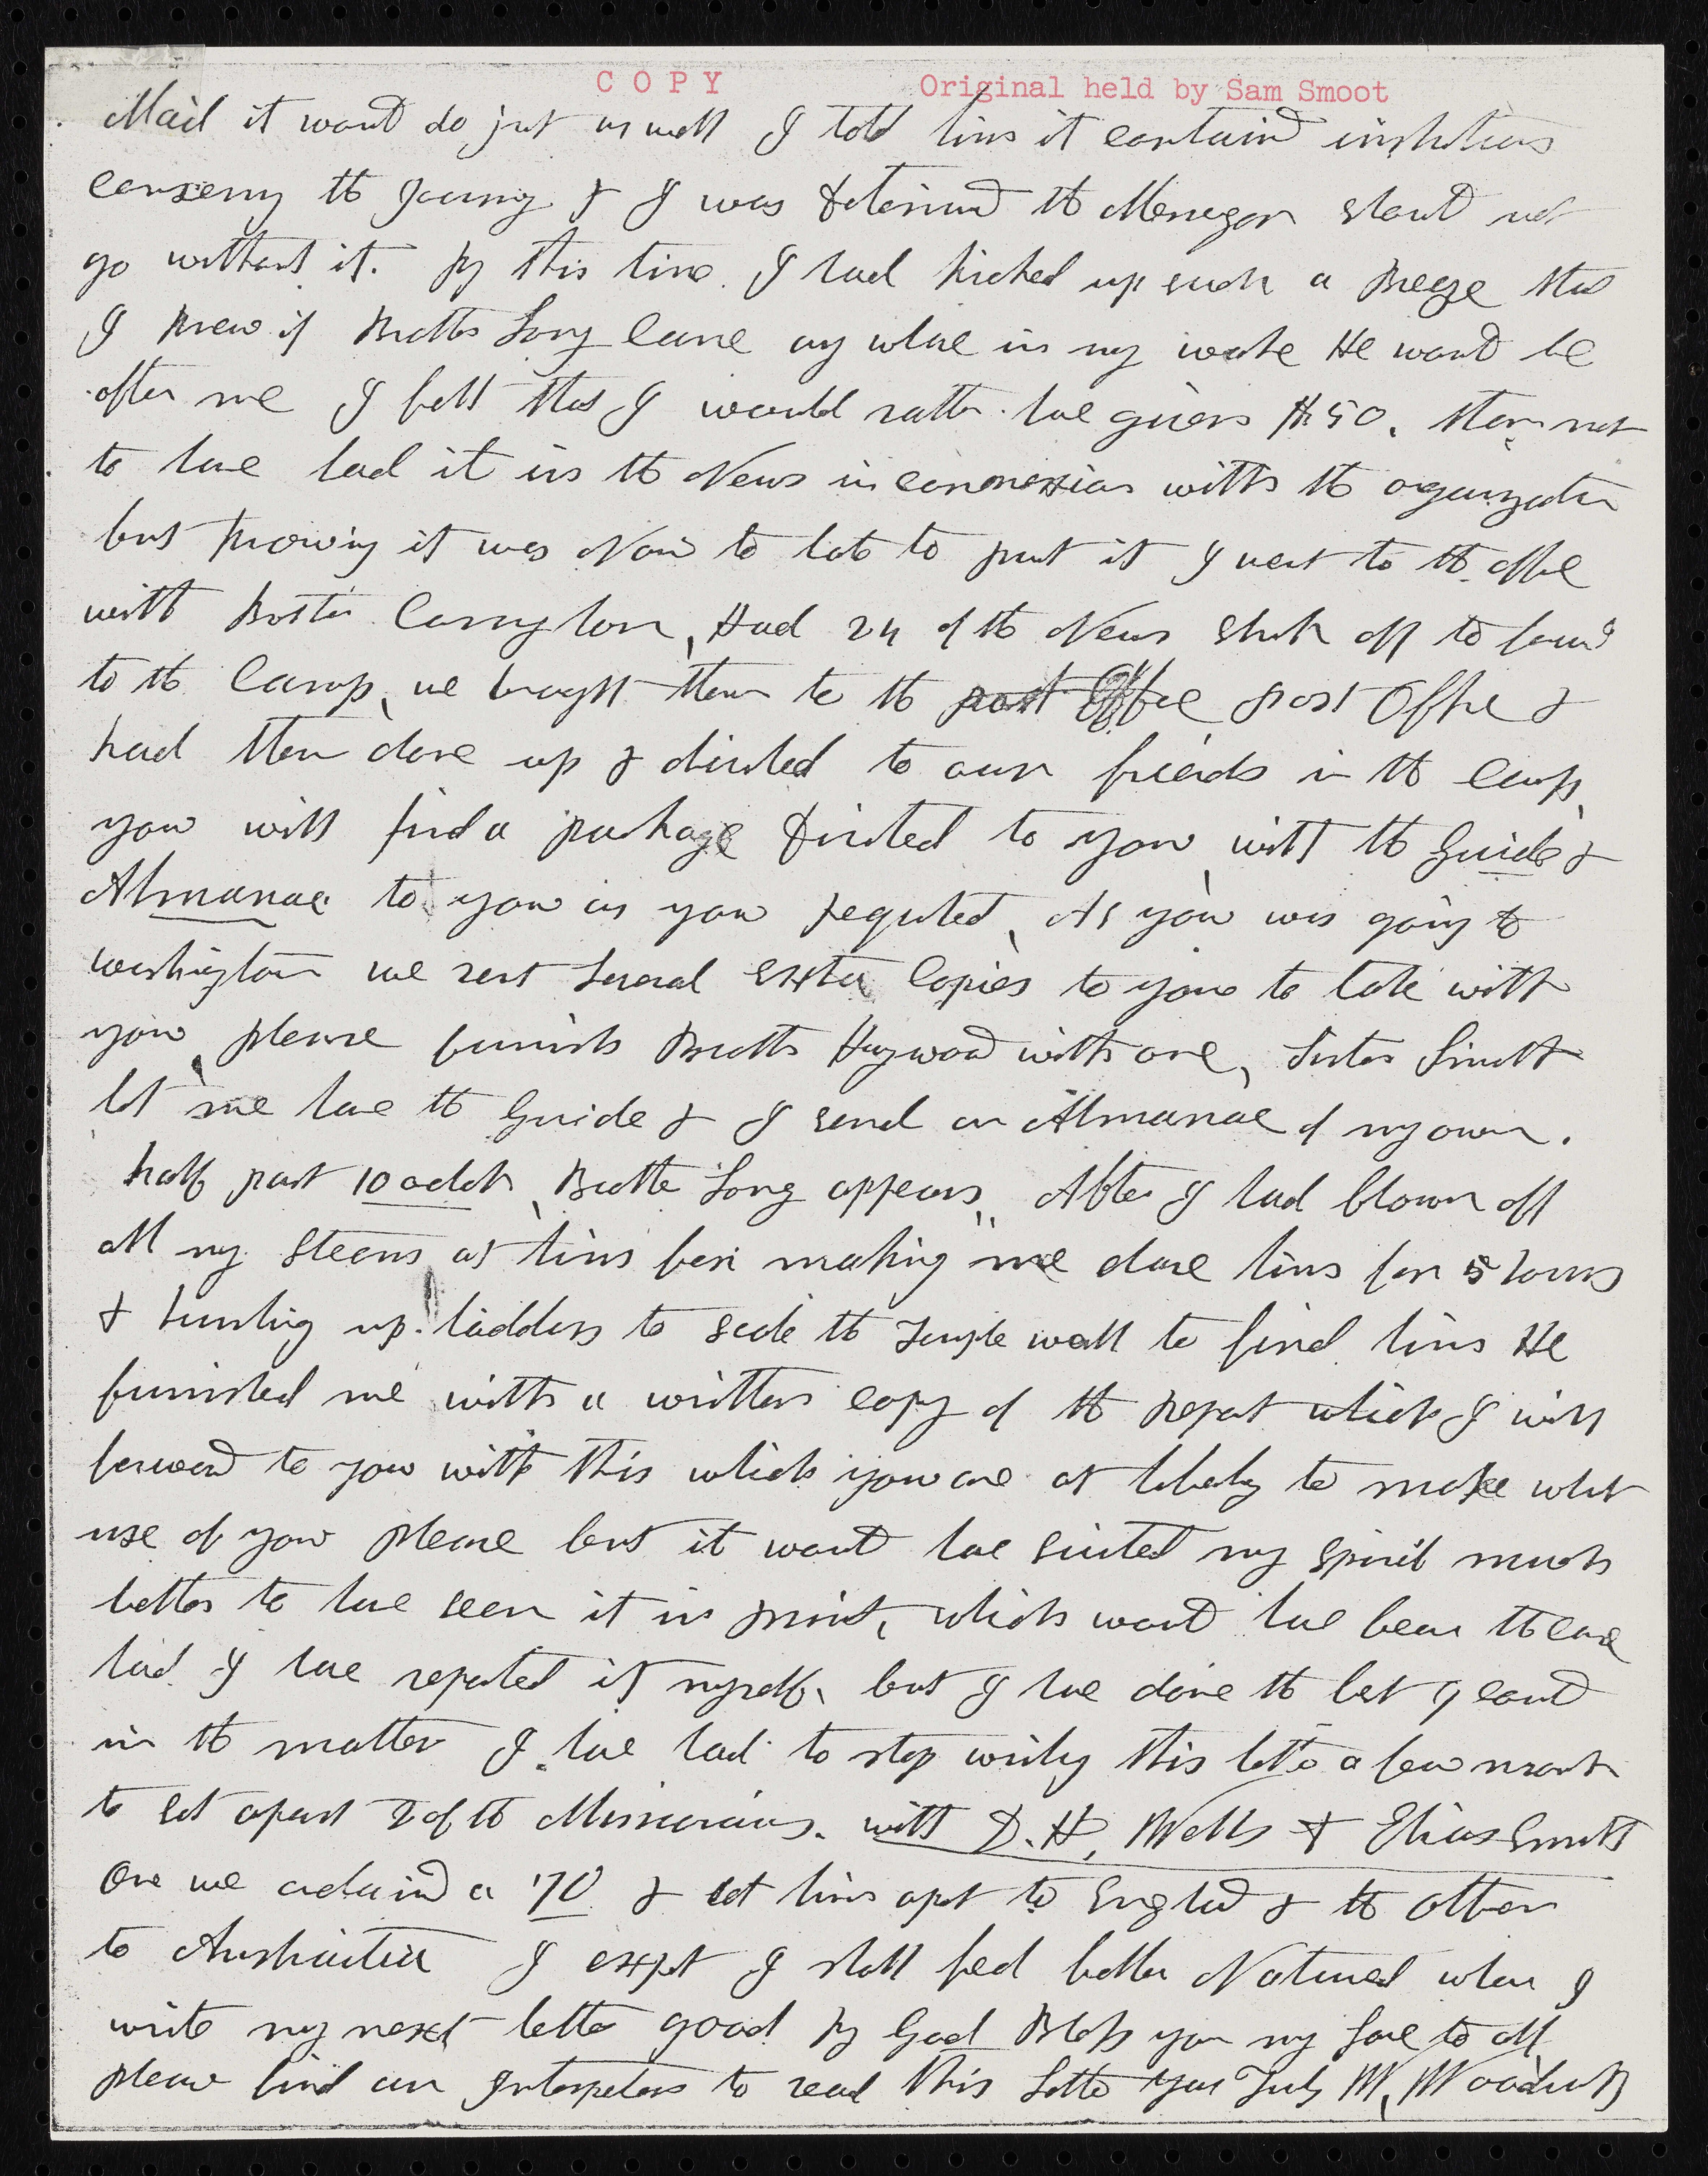 COPY Original held by Sam Smoot
Mail it would do just as well I told him it contained instructions
concerning the Journey & I was determined the Messenger should not
go without it. By this time I had kicked up such a Breeze that
I knew if Brother Long came any whare in my wake He would be
after me I felt that I would rather have given $50. than not
to have had it in the News in connexion with the organization
but knowing it was Now to late to put it I went to the office
with Brother Carrington, Had 24 of the News struck off to forward
to the Camp, we brought them to the post Office post Office &
had them done up & directed to our friends in the Camp,
you will find a package directed to you with the Guide &
Almanac to you as you requested, As you was going to
washington we sent several extra Copies to you to take with
you, please furnish Brother Haywood with one, Sister Smoot
let me have the Guide & I send an Almanac of my own.
half past 10 oclok, Brother Long appears, After I had blown off
all my Steem at him for making me chase him for 5 hours
& hunting up ladders to scale the Temple wall to find him He
furnished me with a written copy of the Report which I will
forward to you with this which you are at liberty to make what
use of you please but it would have suited my spirit much
better to have seen it in print, which would have been the case
had I have reported it myself, but I have done the best I could
in the matter I have had to stop writing this letter a few moments
to set apart 2 of the Missionaries. with D. H. Wells & Elias Smith
One we ordained a 70 & set him apart to England & the other
to Australia I expect I shall feel better Natured when I
write my next letter good by God Bless you my love to all
please find an Interpeter to read this Letter Yours Truly W, Woodruff